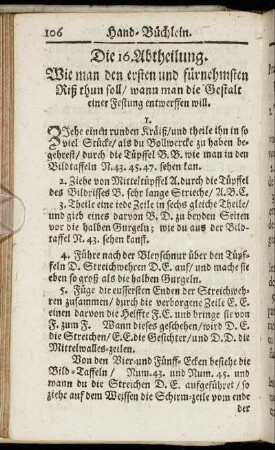 106 Hand-Büchlein.
Die 16. Abtheilung.
Wie man den ersten und fürnehmsten
Riß thun soll / wann man die Gestalt
einer Festung entwerffen will.
1.
Ziehe einen runden Kräiß/und theile ihn in so
viel Stücke/ als du Bollwercke zu haben be-
gehrest/ durch die Tüpffel B.B. wie man in den
Bildtaffeln N.43.45.47. sehen kan.
2. Ziehe von Mitteltüpffel A.durch die Tüpffel
des Bildrisses B. sehr lange Strieche/ A.B.C.
3. Theile eine iede Zeile in sechs gleiche Theile/
und gieb eines darvon B. D. zu beyden Seiten
vor die halben Gurgeln; wie du aus der Bild-
taffel N. 43. sehen kanst.
4. Führe nach der Bleyschnur über den Tüpf-
feln D. Streichwehren D.E. auf/ und mache sie
eben so groß als die halben Gurgeln.
5. Füge die eussersten Enden der Streichweh-
ren zusammen/ durch die verborgene Zeile E. E.
einen darvon die Helffte F.E. und bringe sie von
F. zum F. Wann dieses geschehen/wird D.E. die
Streichen/ E.E.die Gesichter/und D.D. die
Mittelwalles-zeilen.
Von den Vier-und Fünff-Ecken besiehe die
Bild-Taffeln / Num.43. und Num. 45. und
wann du die Streichen D. E. aufgeführet / so
ziehe auf dem Weissen die Schirm-zeile vom ende
der